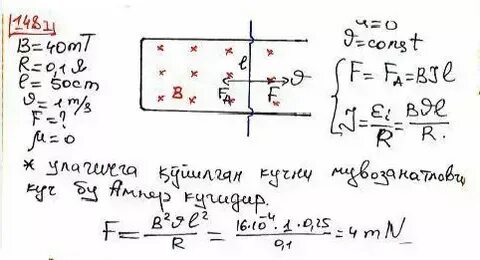 1482
B=40mT
R=0,1Ω
ℓ=50cm
ϑ=1m/s
F=?
μ=0
B
ℓ
F_A
F
ϑ
μ=0
ϑ=const
F=F_A=BIℓ
I=εi/R=Bϑℓ/R.
* улагичга қўйилган кучни мувозанатловчи
куч бу Ампер кучидир.
F=B²ϑℓ²/R=16·10⁻⁴·1·0,25/0,1=4mN